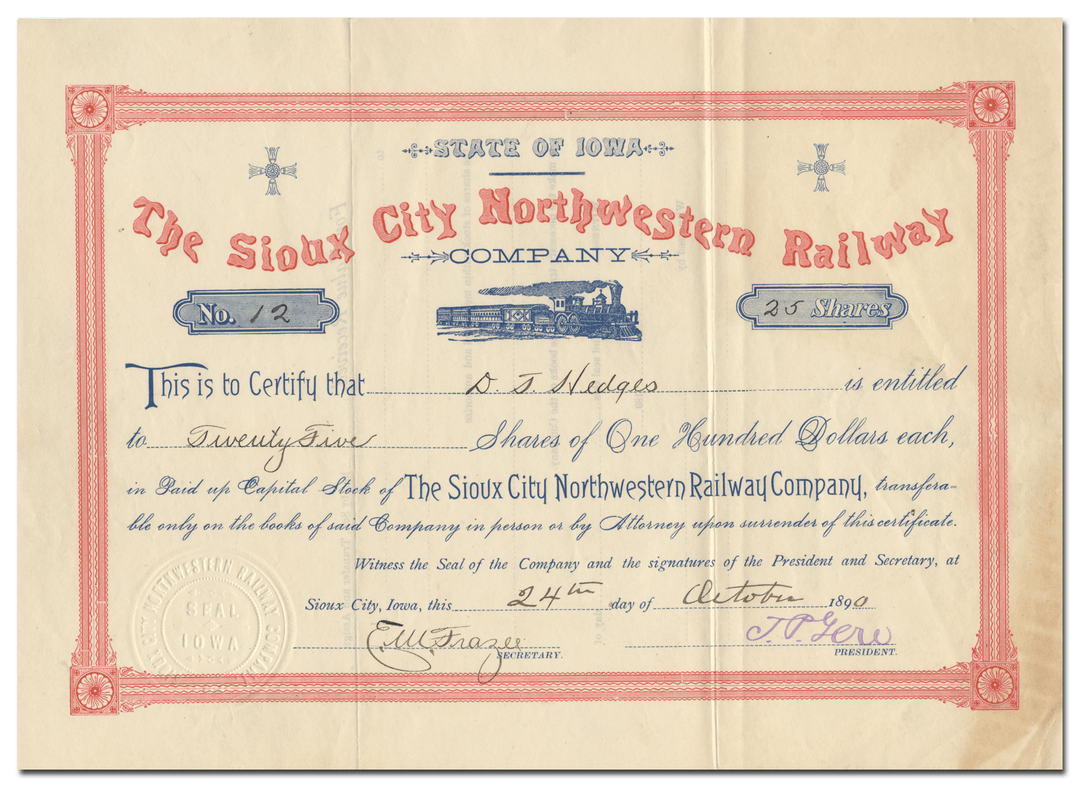 STATE OF IOWA
The Sioux City Northwestern Railway
COMPANY
No. 12
25 Shares
This is to Certify that D. T. Hedges is entitled
to Twenty Five Shares of One Hundred Dollars each,
in Paid up Capital Stock of The Sioux City Northwestern Railway Company, transfera-
ble only on the books of said Company in person or by Attorney upon surrender of this certificate.
Witness the Seal of the Company and the signatures of the President and Secretary, at
Sioux City, Iowa, this 24th day of October 1890
E. W. Frazee
SECRETARY.
T. P. Gere
PRESIDENT.
CITY NORTHWESTERN RAILWAY COMPANY
SEAL
IOWA